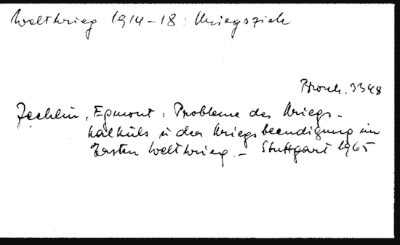 Weltkrieg 1914-18: Kriegsziele
Brosch. 3348
Zechlin, Egmont: Probleme des Kriegs-
kalküls u der Kriegsbeendigung im
Ersten Weltkrieg. - Stuttgart 1965